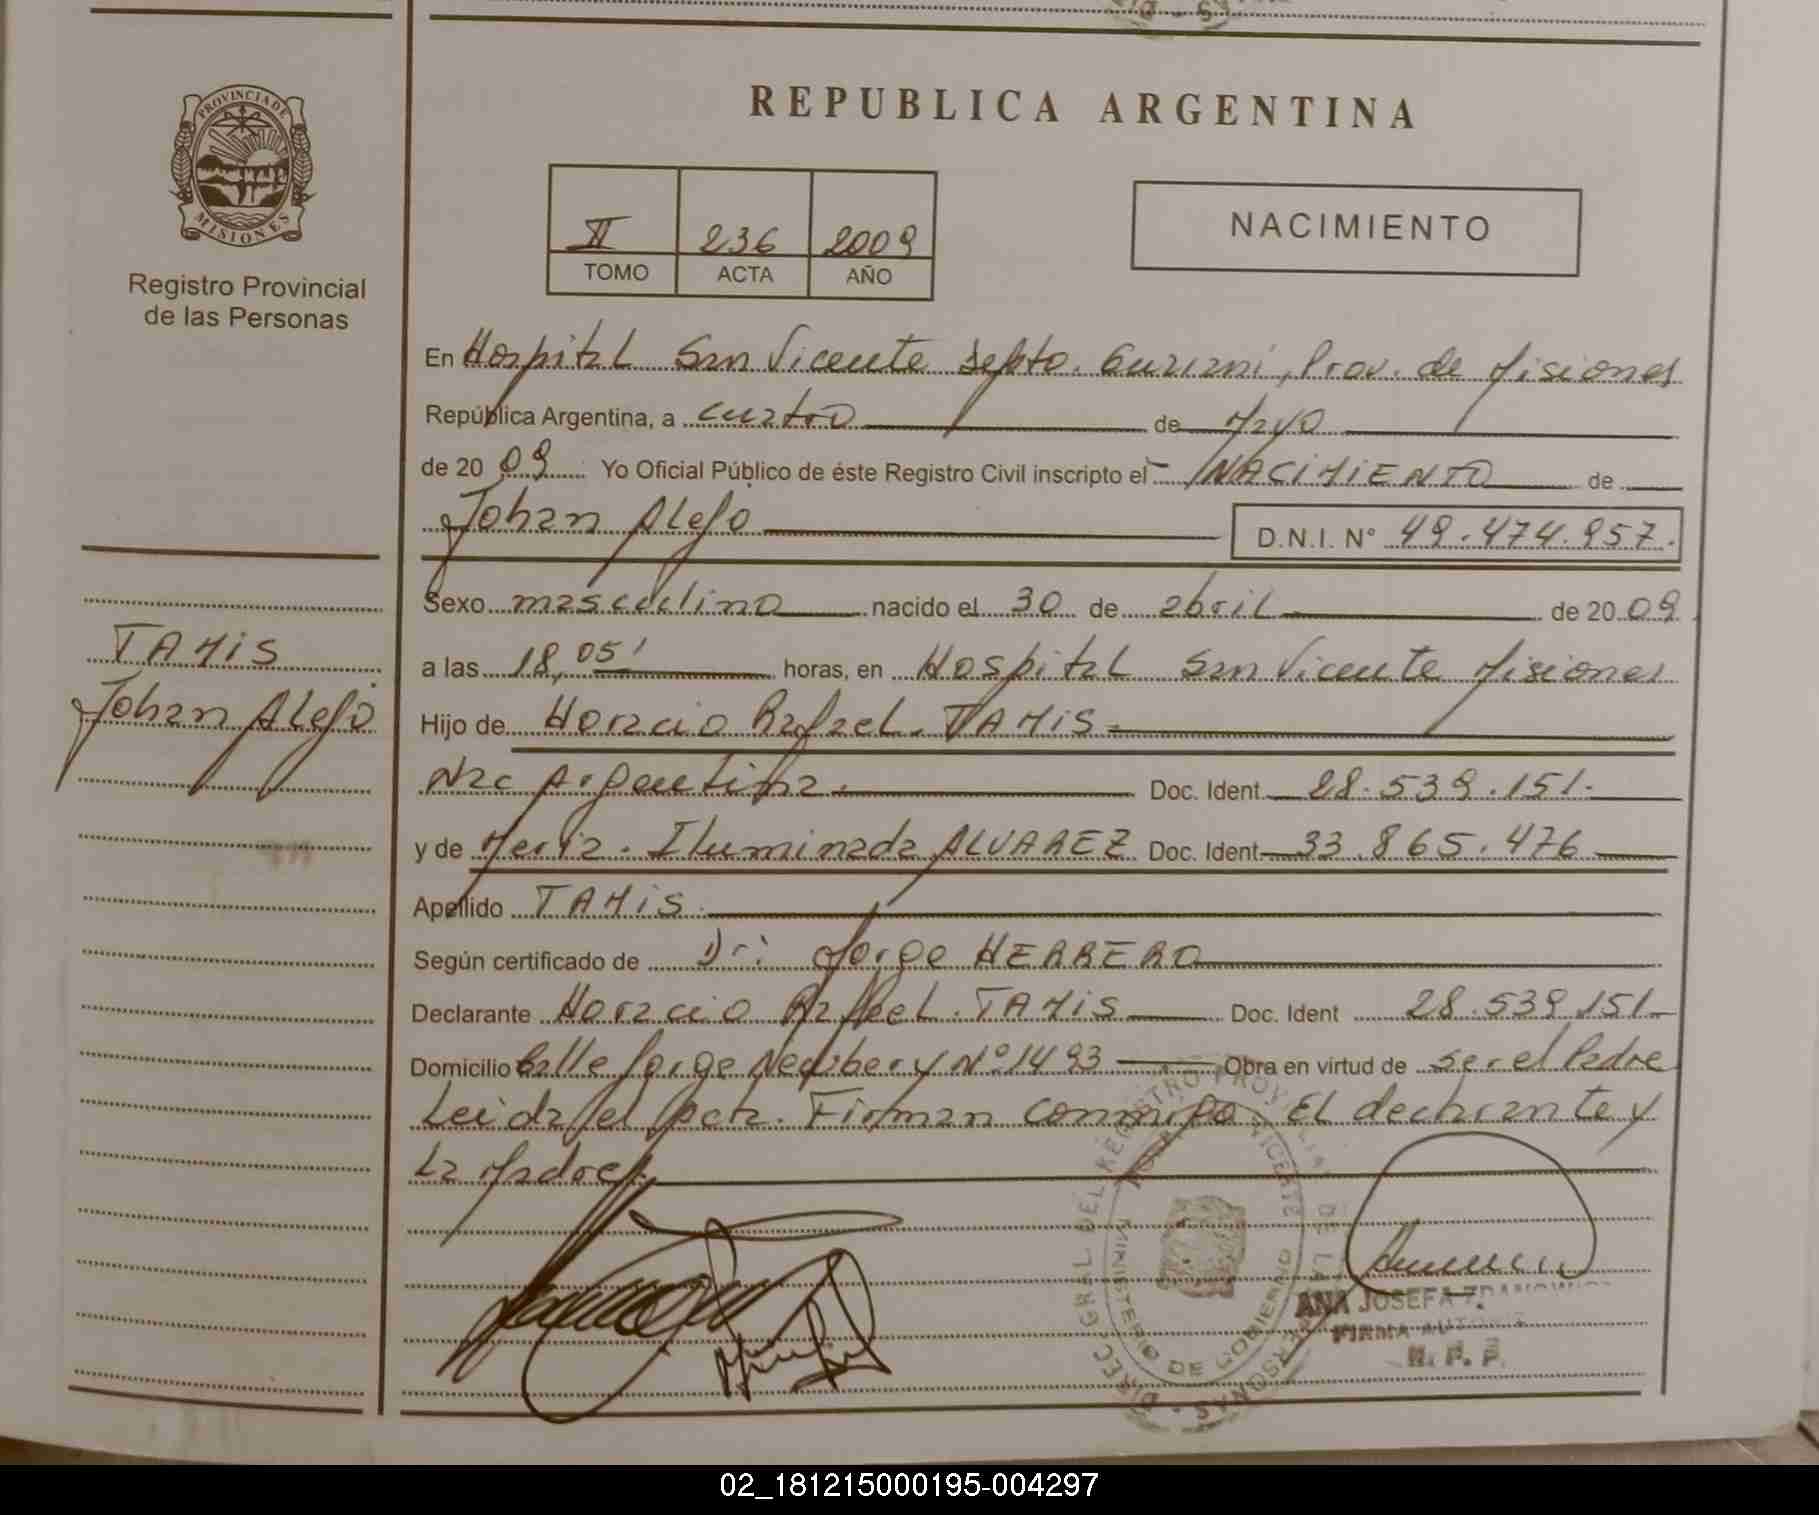 REPUBLICA ARGENTINA
PROVINCIA DE
MISIONES
Registro Provincial
de las Personas
II 236 2009
TOMO ACTA AÑO
NACIMIENTO
En Hospital San Vicente Depto. Guarani, Prov. de Misiones
República Argentina, a cuatro de Mayo
de 2009 Yo Oficial Público de éste Registro Civil inscripto el NACIMIENTO de
Johan Alejo D.N.I. N° 49.474.957.
Sexo masculino nacido el 30 de abril de 2009
a las 18,05' horas, en Hospital San Vicente Misiones
Hijo de Horacio Rafael. TAMIS
Nac Argentina. Doc. Ident. 28.539.151.
y de Maria. Iluminada ALVAREZ Doc. Ident 33.865.476
Apellido TAMIS.
Según certificado de Dr: Jorge HERRERO
Declarante Horacio Rafael. TAMIS Doc. Ident 28.539.151
Domicilio Calle Jorge N° 1493 Obra en virtud de ser el Padre
Leida el acta. Firman conmigo El declarante y
La Madre.
TAMIS
Johan Alejo
DIREC. GRAL. DEL REGISTRO PROVINCIAL DE LAS PERSONAS
MINISTERIO DE GOBIERNO
ANA JOSEFA
FIRMA
R. P. P.
02_181215000195-004297